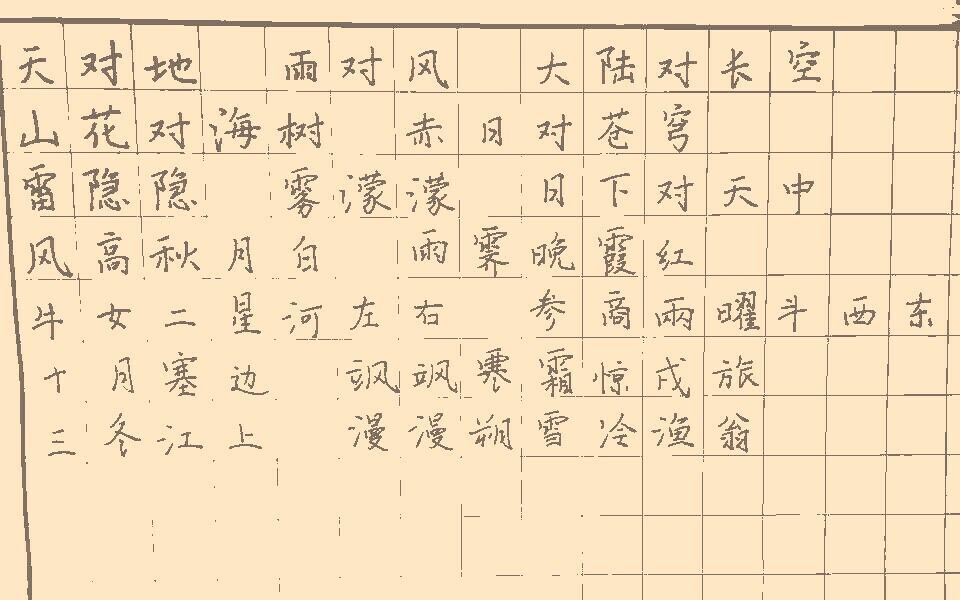 天对地 雨对风 大陆对长空
山花对海树 赤日对苍穹
雷隐隐 雾濛濛 日下对天中
风高秋月白 雨霁晚霞红
牛女二星河左右 参商兩曜斗西东
十月塞边 飒飒寒霜惊戍旅
三冬江上 漫漫朔雪冷渔翁